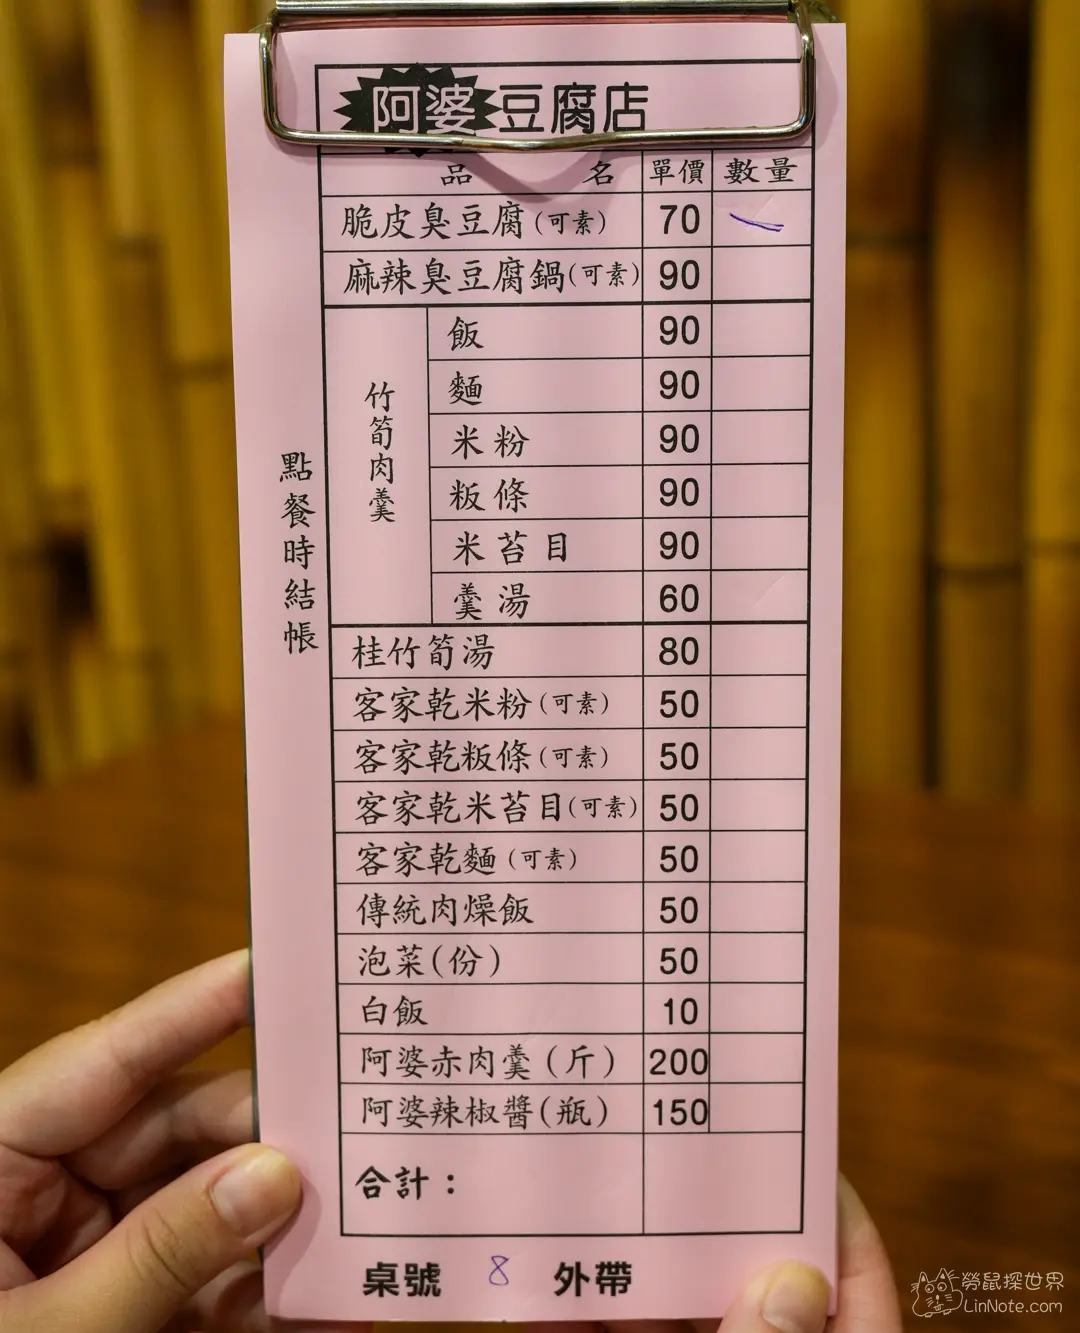 阿婆豆腐店
品名 單價 數量
脆皮臭豆腐(可素) 70 一
麻辣臭豆腐鍋(可素) 90
竹筍肉羹
飯 90
麵 90
米粉 90
粄條 90
米苔目 90
羹湯 60
桂竹筍湯 80
客家乾米粉(可素) 50
客家乾粄條(可素) 50
客家乾米苔目(可素) 50
客家乾麵(可素) 50
傳統肉燥飯 50
泡菜(份) 50
白飯 10
阿婆赤肉羹(斤) 200
阿婆辣椒醬(瓶) 150
合計：
點餐時結帳
桌號 8 外帶
勞鼠探世界
LinNote.com